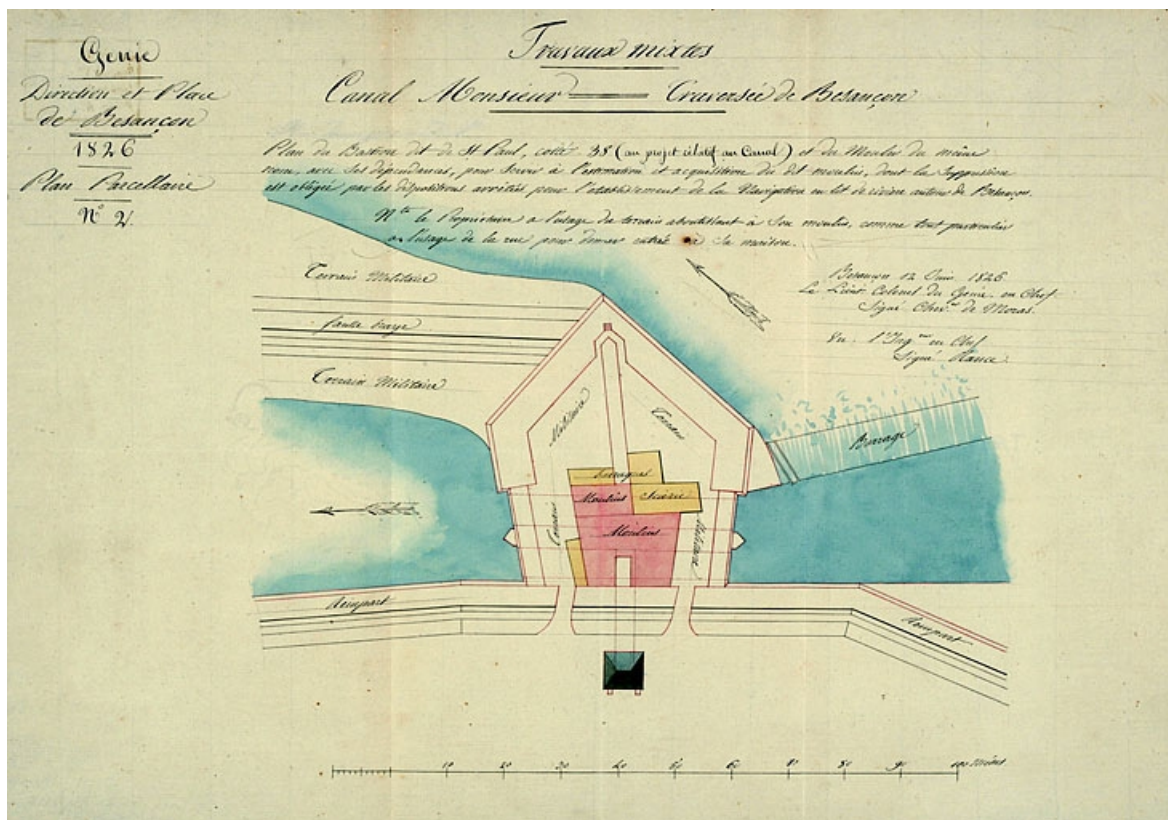 Genie
Direction et Place
de Besançon
1826
Plan Parcellaire
N° 2.
Travaux mixtes
Canal Monsieur Traversée de Besançon
Plan du Bastion dit de St Paul, coté 38 (au projet rélatif au Canal) et du Moulin du même
nom, avec ses dépendances, pour servir à l'estimation et acquisition du dit moulin, dont la suppression
est obligée par les dispositions arrêtées pour l'établissement de la Navigation en lit de rivière autour de Besançon.
Nta le Propriétaire a l'usage du terrain aboutissant à son moulin, comme tout particulier
a l'usage de la rue pour donner entrée à sa maison.
Besançon 12 Juin 1826
Le Lieut. Colonel du Genie en Chef
Signé Chevr de Moras.
Vu l'Ingr en Chef
Signé
Terrain Militaire
fausse braye
Terrain Militaire
Militaire
Terrain
Barrage
Moulins
Scierie
Moulins
Terrain
Militaire
Rempart
Rempart
10 20 30 40 50 60 70 80 90 100 mètres